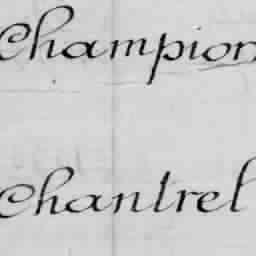 Champion
Chantrel